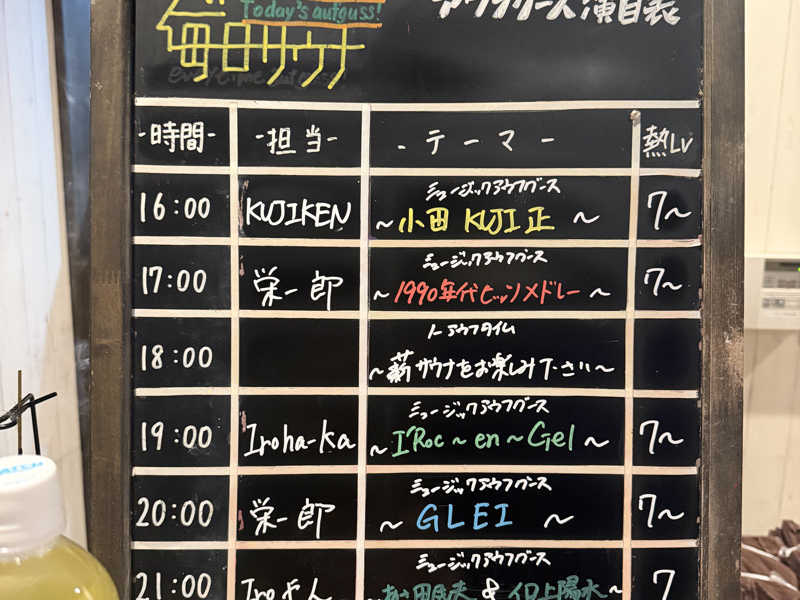 Today's aufguss!
毎日サウナ
アウフグース演目表
-時間-
-担当-
-テーマ-
熱Lv
16:00
KUJIKEN
ミュージックアウフグース
～小田 KUJI 正～
7～
17:00
栄一郎
ミュージックアウフグース
～1990年代ヒットソンメドレー～
7～
18:00
ノーアウフタイム
～薪サウナをお楽しみ下さい～
19:00
Iroha-ka
ミュージックアウフグース
～I'Roc～en～Gel～
7～
20:00
栄一郎
ミュージックアウフグース
～GLEI～
7～
21:00
ミュージックアウフグース
&井上陽水～
7